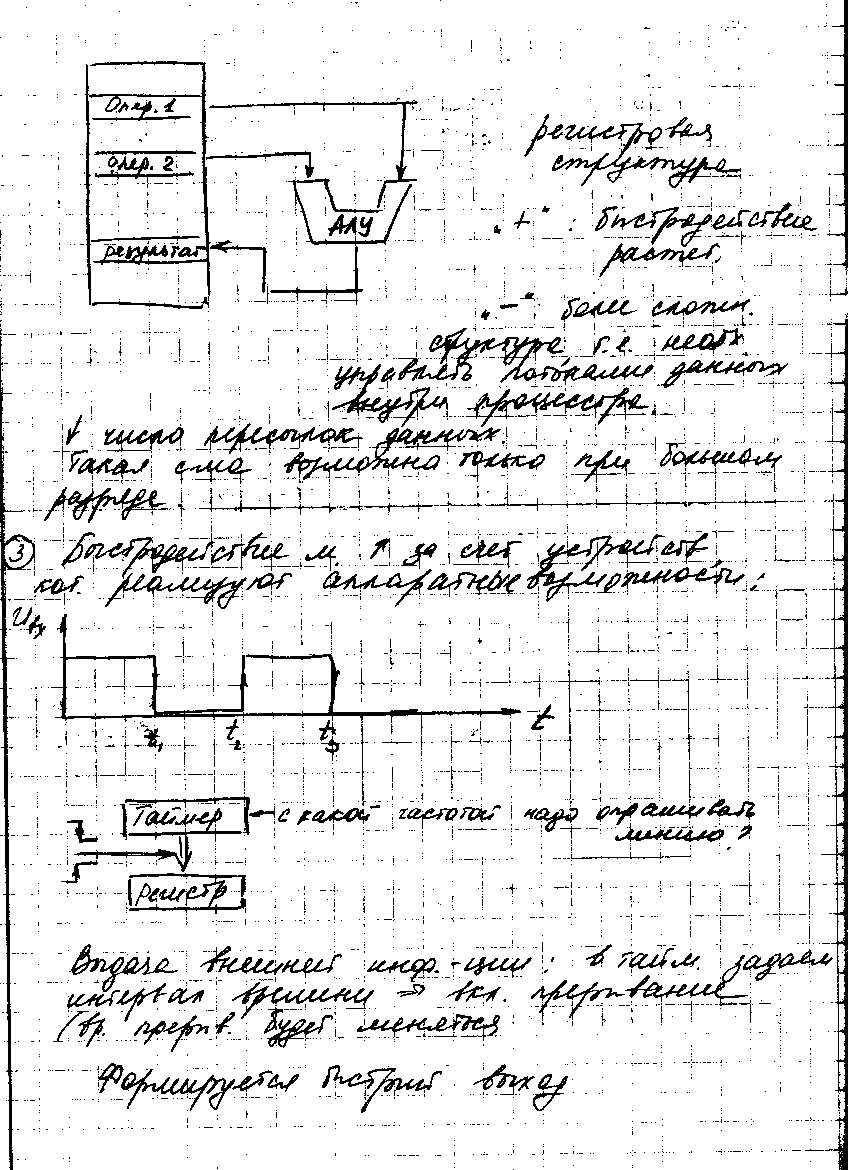 Опер. 1
Опер. 2
АЛУ
результат
регистровая
структура
"+" : быстродействие
растет.
"—" более сложн.
структура, т.е. необх.
управлять потоками данных
внутри процессора.
↓ число пересылок данных.
Такая с-ма возможна только при большом
разряде.
③ Быстродействие м. ↑ за счет устройств,
кот. реализуют аппаратные возможности:
Uвх
t₁ t₂ t₃ t
Таймер ← с какой частотой надо опрашивать
линию?
Регистр
Выдача внешней инф.-ции: в тайм. задаем
интервал времени ⇒ вкл. прерывание
(вр. прерыв. будет меняться
Формируется быстрый выход